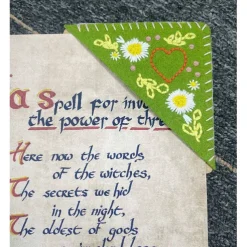 a spell for inv
the power of thre
Here now the words
of the witches,
The secrets we hid
in the night,
The oldest of gods